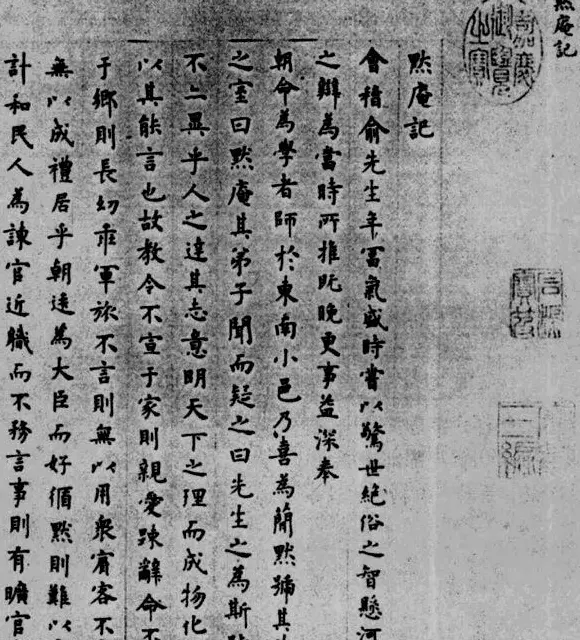 默庵記
默庵記
會稽俞先生年富氣盛時嘗以驚世絕俗之智懸河
之辯為當時所推既晚更事益深奉
朝命為學者師於東南小邑乃喜為簡默號其
之室曰默庵其弟子聞而疑之曰先生之為斯
不亦異乎人之達其志意明天下之理而成物化
以其能言也故教令不宣于家則親愛踈辭命不
于鄉則長幼乖軍旅不言則無以用衆賓客不
無以成禮居乎朝遠為大臣而好循默則難以
計和民人為諫官近職而不務言事則有曠官